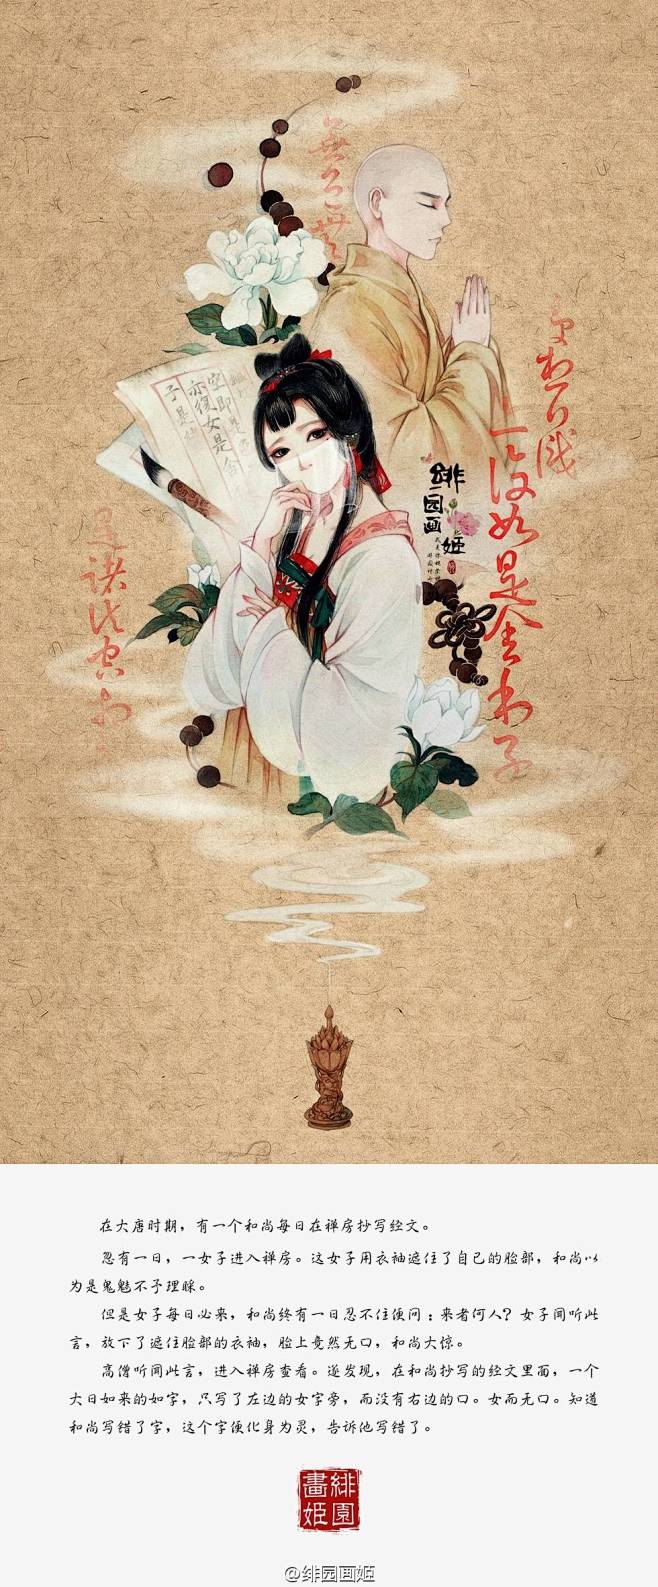 绯园画姬
空即是色
亦復女是舍
子是諸
是諸法空相
亦復如是舍利子
在大唐时期，有一个和尚每日在禅房抄写经文。
忽有一日，一女子进入禅房。这女子用衣袖遮住了自已的脸部，和尚以
为是鬼魅不予理睬。
但是女子每日必来，和尚终有一日忍不住便问：来者何人？女子闻听此
言，放下了遮住脸部的衣袖，脸上竟然无口，和尚大惊。
高僧听闻此言，进入禅房查看。遂发现，在和尚抄写的经文里面，一个
大日如来的如字，只写了左边的女字旁，而没有右边的口。女而无口。知道
和尚写错了字，这个字便化身为灵，告诉他写错了。
緋園畫姬
@绯园画姬